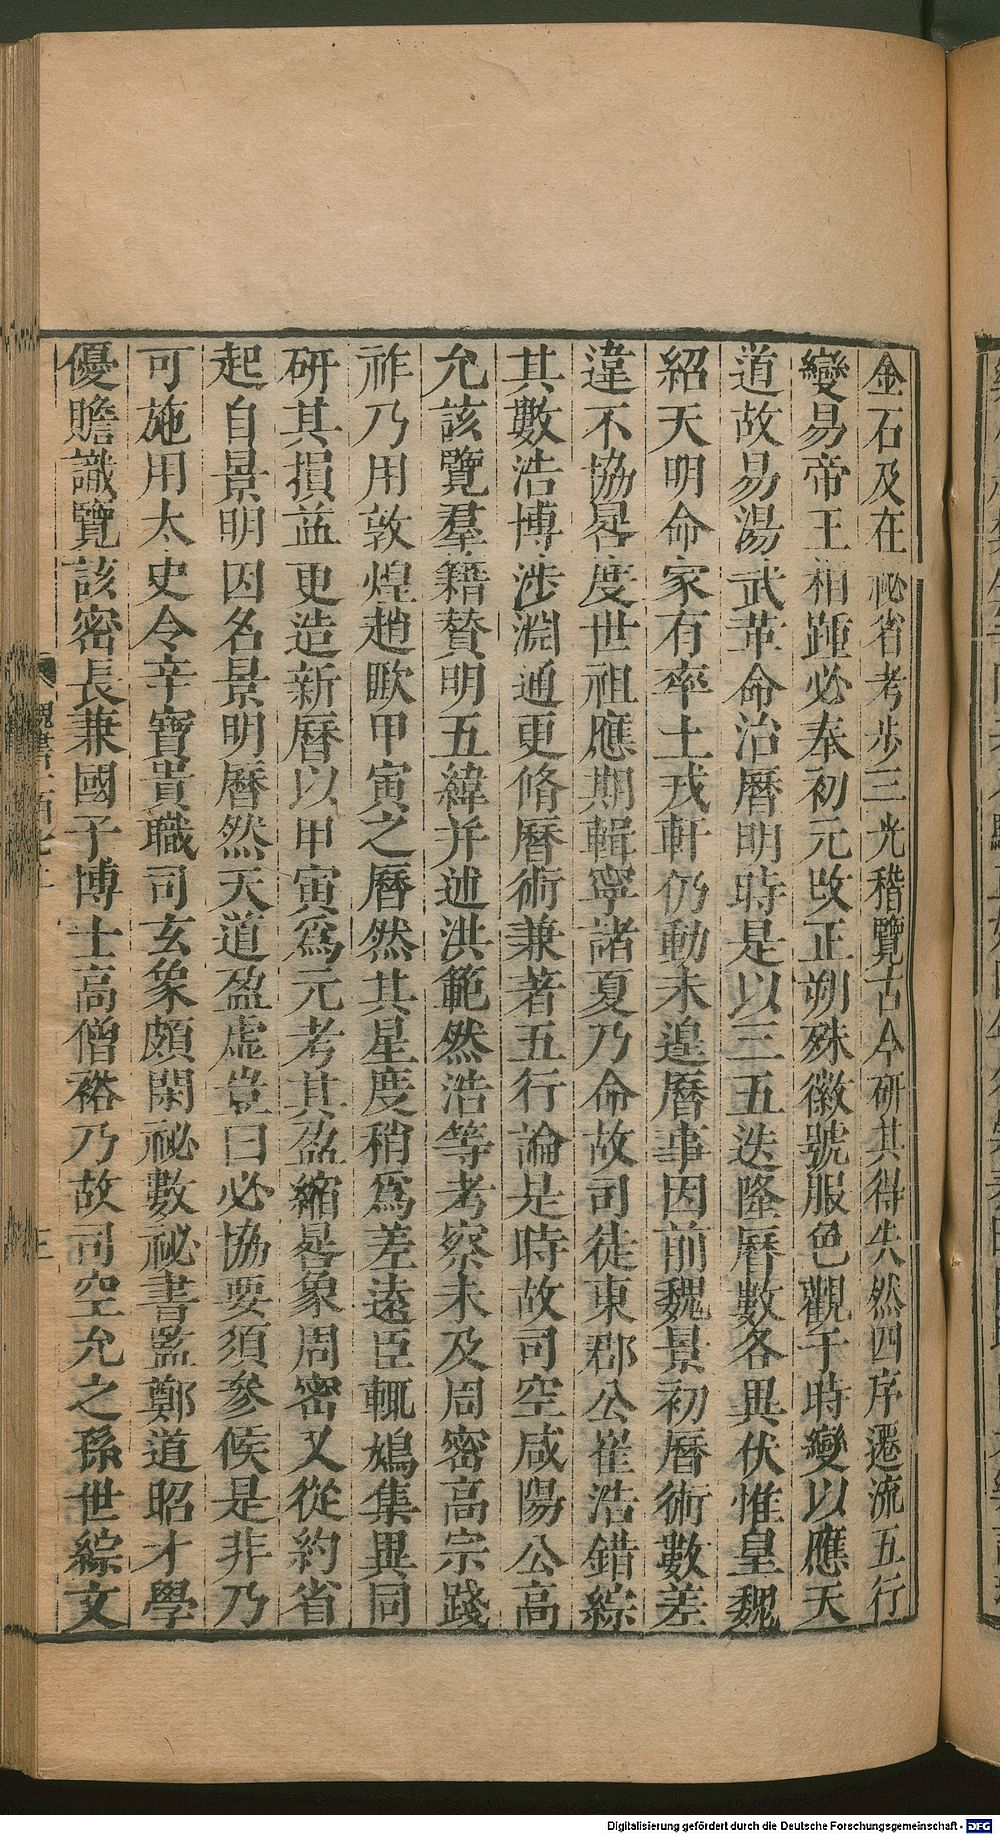 金石及在祕省考步三光稽覽古今研其得失然四序遷流五行
變易帝王相踵必奉初元改正朔殊徽號服色觀于時變以應天
道故易湯武革命治曆明時是以三五迭隆曆數各異伏惟皇魏
紹天明命家有率土戎軒仍動未遑曆事因前魏景初曆術數差
違不協晷度世祖應期輯寧諸夏乃命故司徒東郡公崔浩錯綜
其數浩博涉淵通更脩曆術兼著五行論是時故司空咸陽公高
允該覽羣籍贊明五緯并述洪範然浩等考察未及周密高宗踐
祚乃用敦煌趙𢾺甲寅之曆然其星度稍爲差遠臣輒鳩集異同
研其損益更造新曆以甲寅爲元考其盈縮晷象周密又從約省
起自景明因名景明曆然天道盈虛豈曰必協要須參候是非乃
可施用太史令辛寶貴職司玄象頗閑祕數祕書監鄭道昭才學
優贍識覽該密長兼國子博士高僧裕乃故司空允之孫世綜文
三
Digitalisierung gefördert durch die Deutsche Forschungsgemeinschaft - DFG